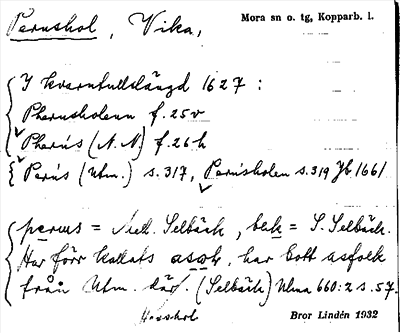 Pernshol, Vika,
Mora sn o. tg, Kopparb. l.
I kvarntullslängd 1627:
Phernsholenn f. 25v
Pherns (N. N) f. 26 h
Perns (Utm.) s. 317, Pernsholen s. 319 Jb 1661
perus = Nedl. Selbäck, bak = S. Selbäck.
Har förr kallats asok, har bott asfolk
från Utm. där. (Selbäck) Ulma 660:2 s. 57.
Bror Lindén 1932